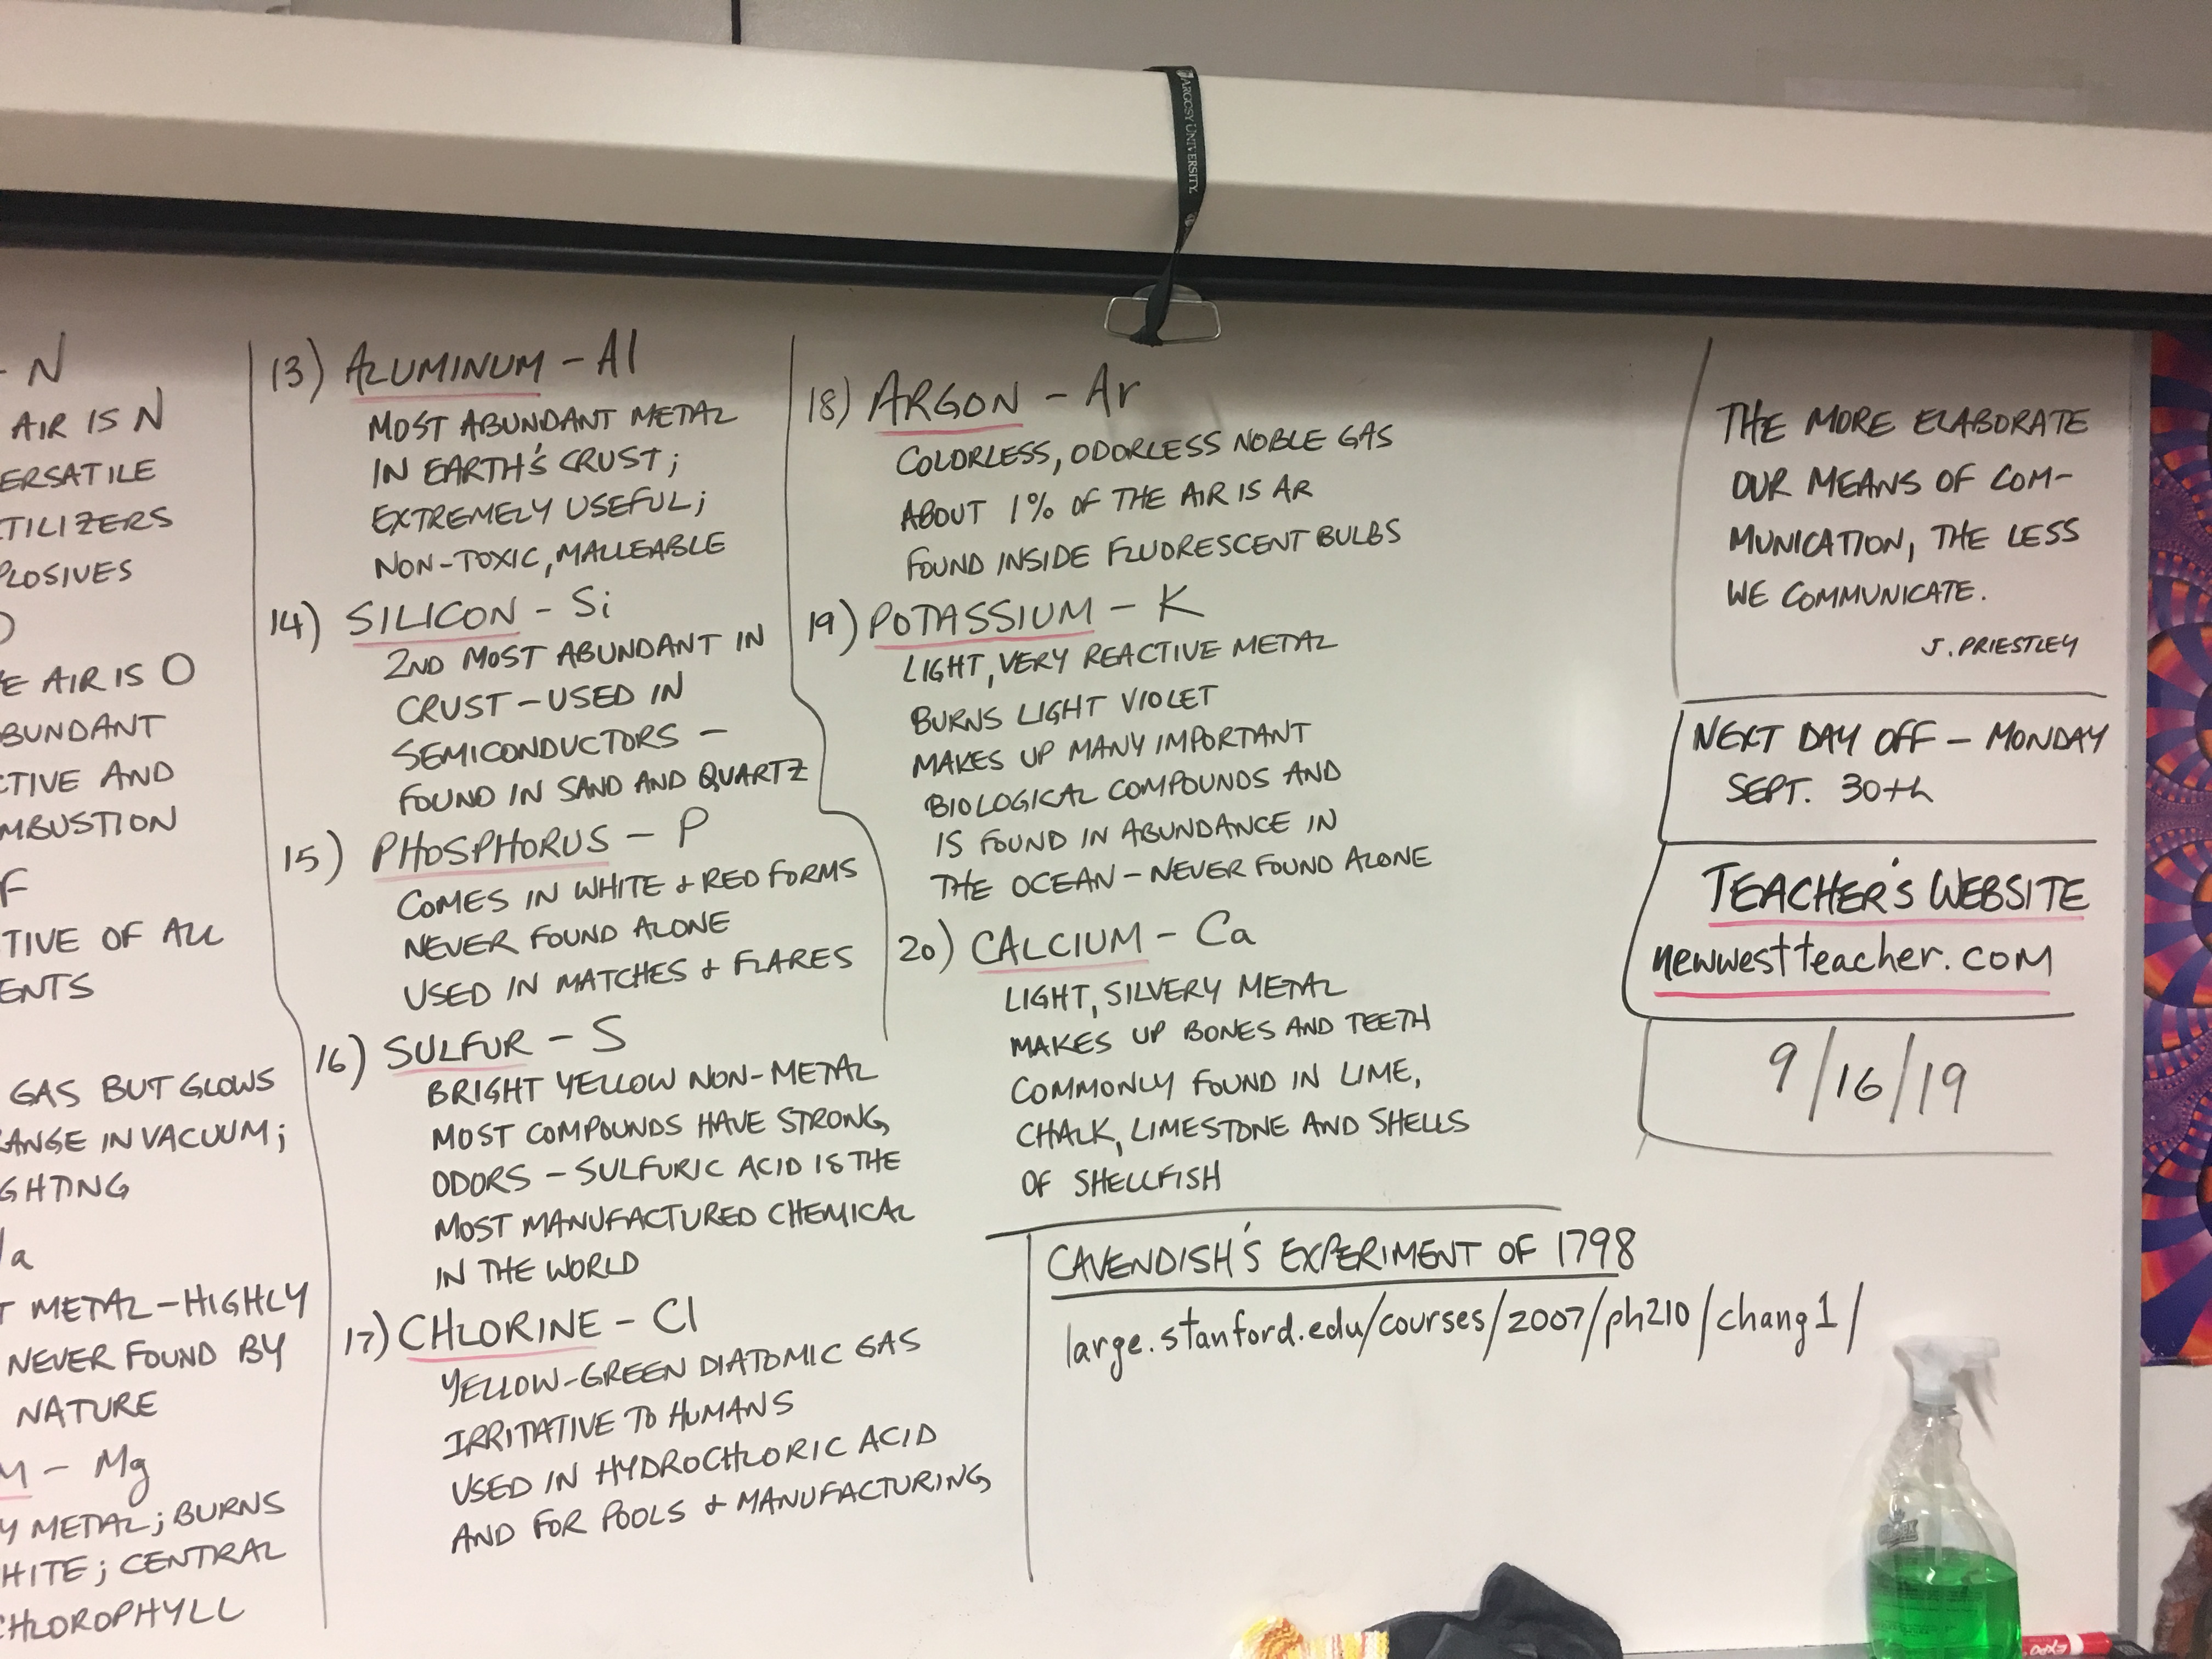 ARGOSY UNIVERSITY
- N
AIR IS N
ERSATILE
TILIZERS
PLOSIVES
E AIR IS O
BUNDANT
CTIVE AND
MBUSTION
F
TIVE OF ALL
ENTS
GAS BUT GLOWS
RANGE IN VACUUM;
GHTING
a
T METAL - HIGHLY
NEVER FOUND BY
NATURE
M - Mg
Y METAL; BURNS
HITE; CENTRAL
CHLOROPHYLL
13) ALUMINUM - Al
MOST ABUNDANT METAL
IN EARTH'S CRUST;
EXTREMELY USEFUL;
NON-TOXIC, MALLEABLE
14) SILICON - Si
2ND MOST ABUNDANT IN
CRUST - USED IN
SEMICONDUCTORS -
FOUND IN SAND AND QUARTZ
15) PHOSPHORUS - P
COMES IN WHITE & RED FORMS
NEVER FOUND ALONE
USED IN MATCHES & FLARES
16) SULFUR - S
BRIGHT YELLOW NON-METAL
MOST COMPOUNDS HAVE STRONG
ODORS - SULFURIC ACID IS THE
MOST MANUFACTURED CHEMICAL
IN THE WORLD
17) CHLORINE - Cl
YELLOW-GREEN DIATOMIC GAS
IRRITATIVE TO HUMANS
USED IN HYDROCHLORIC ACID
AND FOR POOLS & MANUFACTURING
18) ARGON - Ar
COLORLESS, ODORLESS NOBLE GAS
ABOUT 1% OF THE AIR IS AR
FOUND INSIDE FLUORESCENT BULBS
19) POTASSIUM - K
LIGHT, VERY REACTIVE METAL
BURNS LIGHT VIOLET
MAKES UP MANY IMPORTANT
BIOLOGICAL COMPOUNDS AND
IS FOUND IN ABUNDANCE IN
THE OCEAN - NEVER FOUND ALONE
20) CALCIUM - Ca
LIGHT, SILVERY METAL
MAKES UP BONES AND TEETH
COMMONLY FOUND IN LIME,
CHALK, LIMESTONE AND SHELLS
OF SHELLFISH
CAVENDISH'S EXPERIMENT OF 1798
large.stanford.edu/courses/2007/ph210/chang1/
THE MORE ELABORATE
OUR MEANS OF COM-
MUNICATION, THE LESS
WE COMMUNICATE.
J. PRIESTLEY
NEXT DAY OFF - MONDAY
SEPT. 30th
TEACHER'S WEBSITE
newwestteacher.com
9/16/19
EXPO